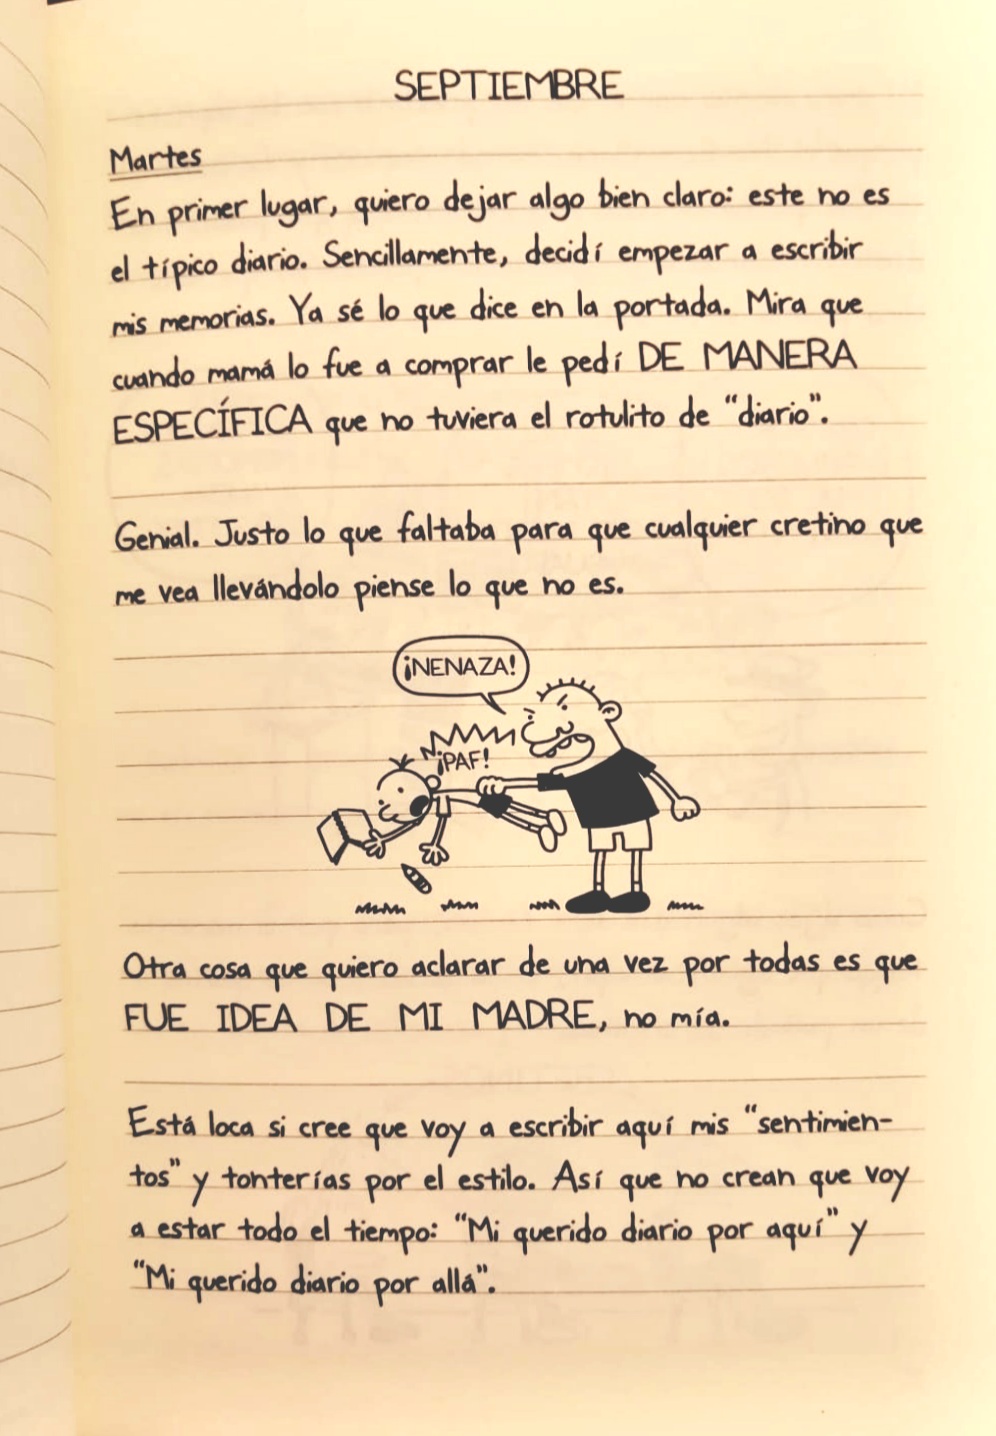 SEPTIEMBRE
Martes
En primer lugar, quiero dejar algo bien claro: este no es
el típico diario. Sencillamente, decidí empezar a escribir
mis memorias. Ya sé lo que dice en la portada. Mira que
cuando mamá lo fue a comprar le pedí DE MANERA
ESPECÍFICA que no tuviera el rotulito de “diario”.
Genial. Justo lo que faltaba para que cualquier cretino que
me vea llevándolo piense lo que no es.
¡NENAZA!
¡PAF!
Otra cosa que quiero aclarar de una vez por todas es que
FUE IDEA DE MI MADRE, no mía.
Está loca si cree que voy a escribir aquí mis “sentimien-
tos” y tonterías por el estilo. Así que no crean que voy
a estar todo el tiempo: “Mi querido diario por aquí” y
“Mi querido diario por allá”.